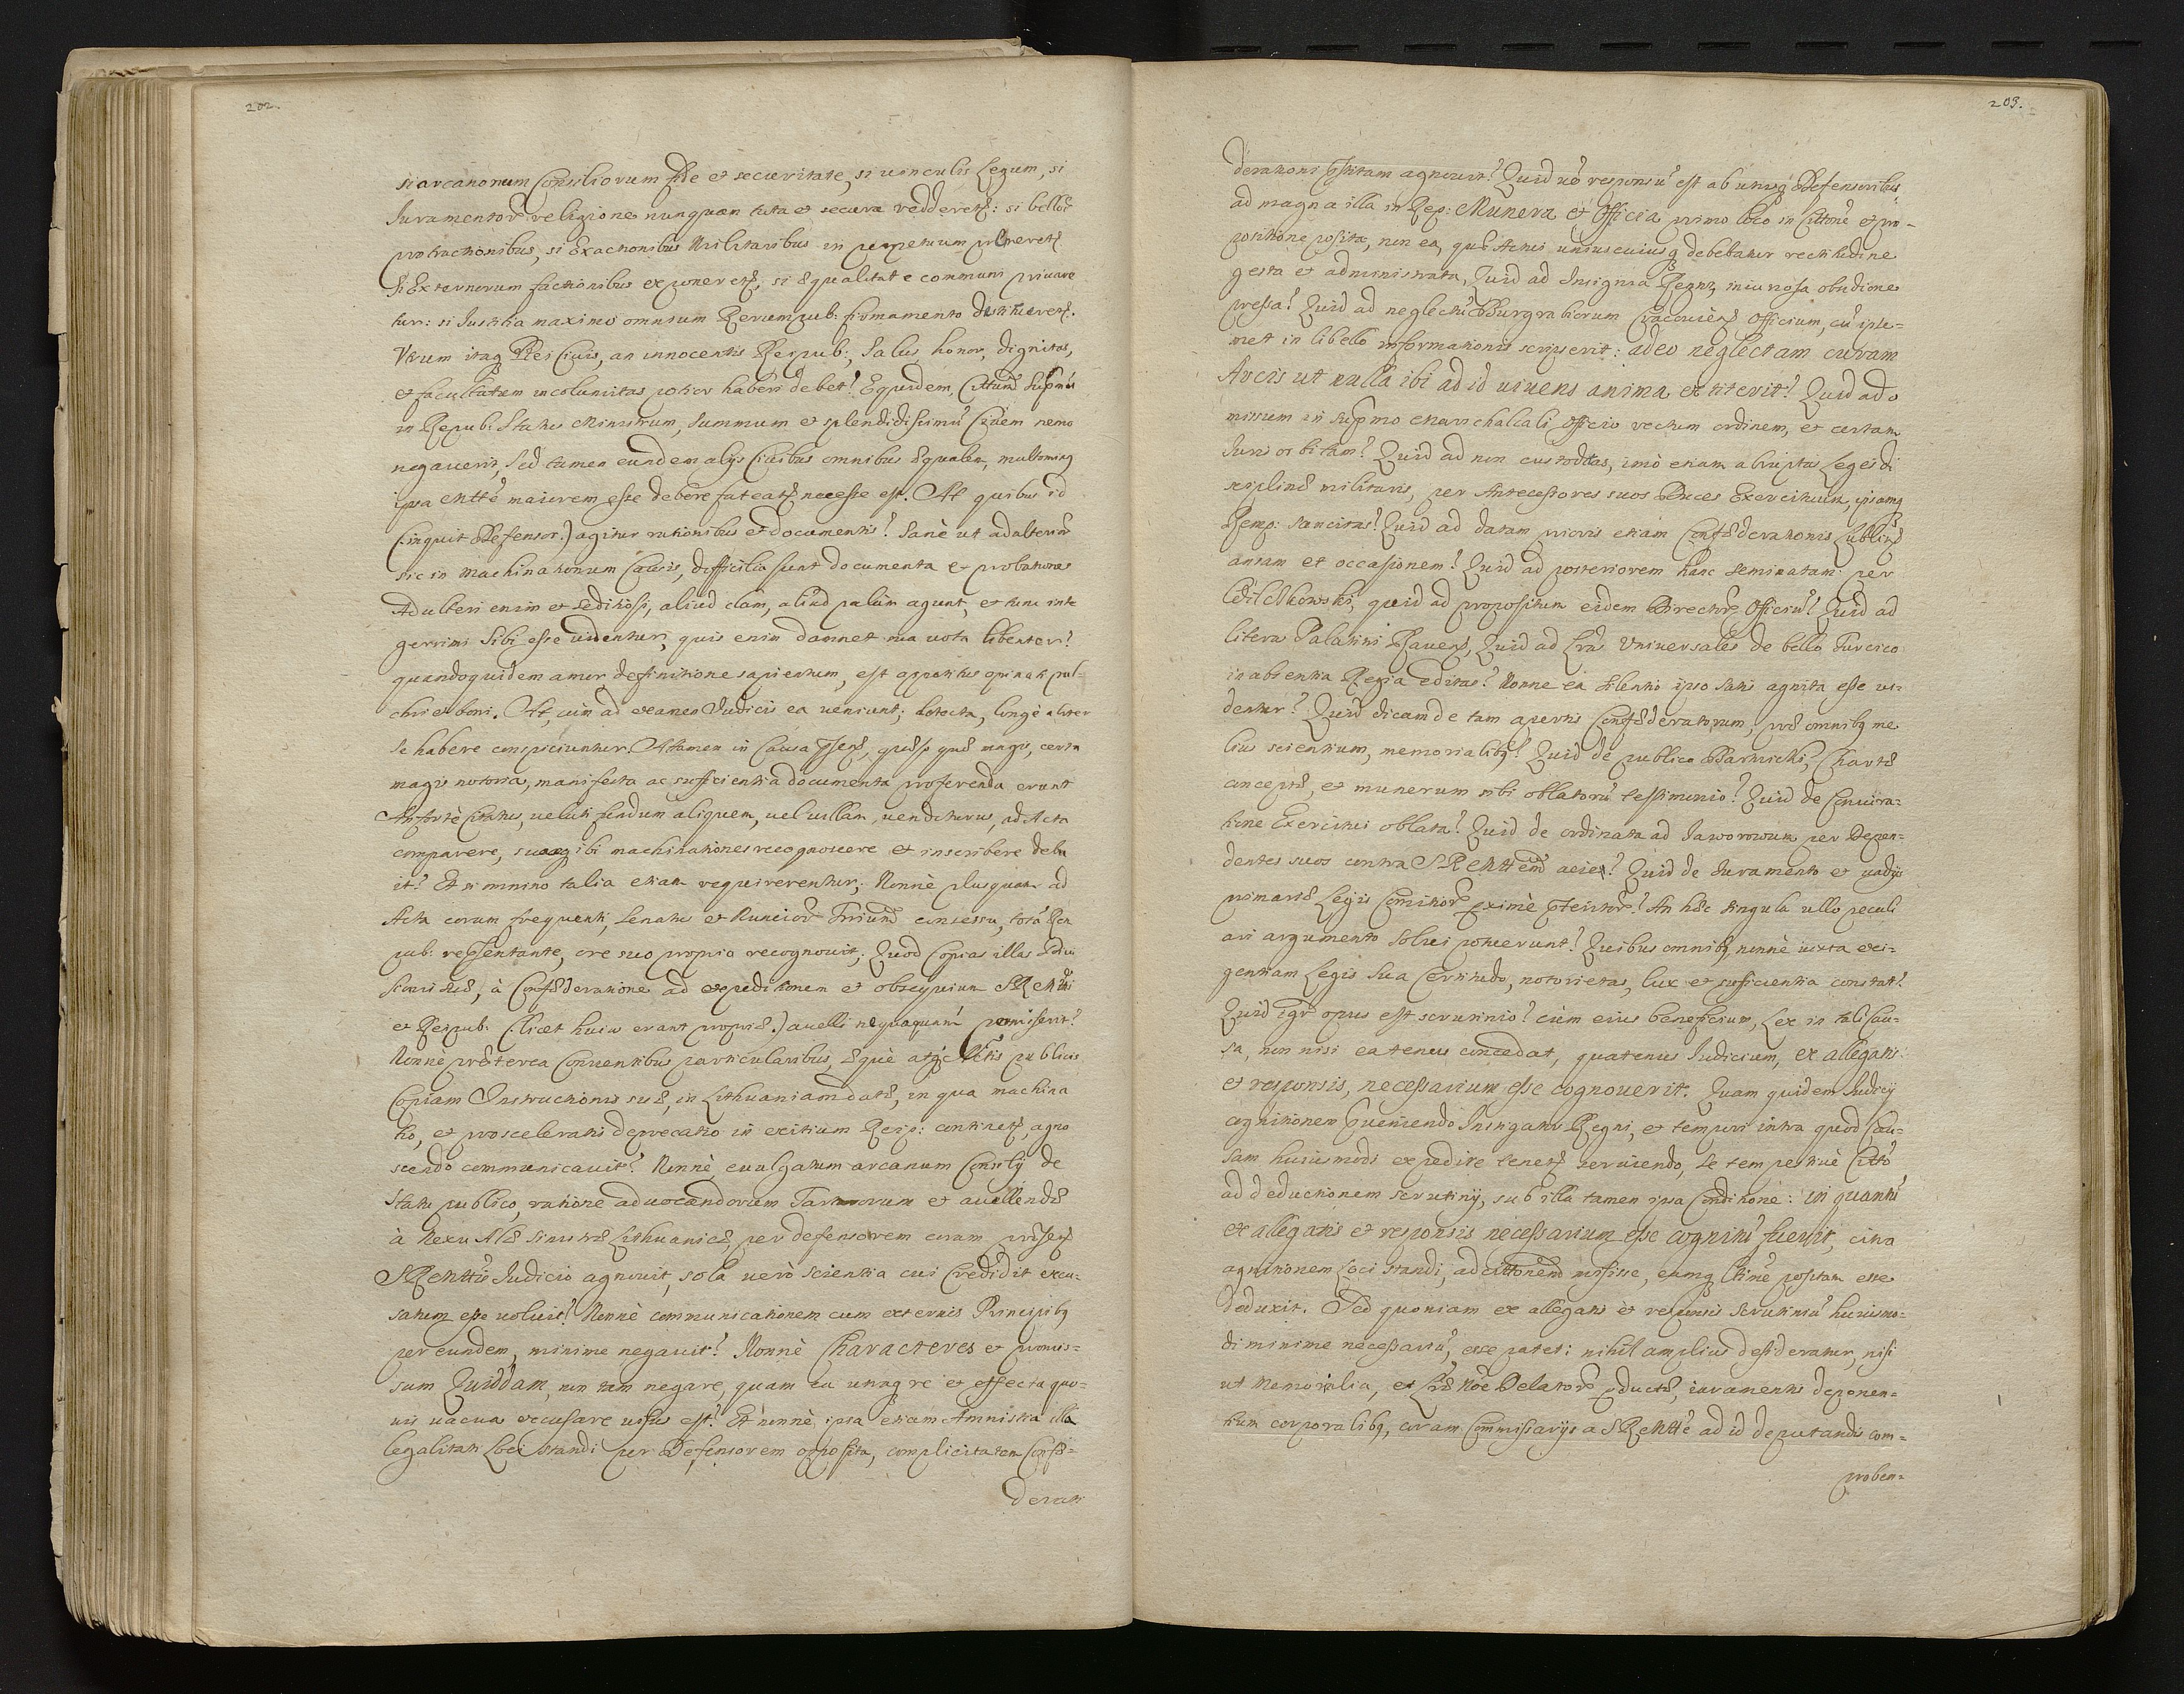 202.
si arcanorum Consiliorum fide et securitate, si uinculis Legum, si
Iuramentor religione nunquam tuta et secura redderet: si bellor
protractionibus, si Exactionibus Militaribus in perpetuum
si Externorum factionibus exponeret, si æqualitate communi priuare
tur: si Iustitia maximo omnium Rerumpub: firmamento destitueret.
Vtrum itaq Ciuis, an innocentis Reipub: Salus, honor, dignitas,
et facultatum incolumitas potior haberi debet? Equidem,
in Repub: Status Ministrum, Summum et splendidissimū Ciuem nemo
negauerit, Sed tamen eundem alijs Ciuibus omnibus æqualem, multominq
ipsa Mtte maiorem esse debere fateat necesse est. At quibus id
(inquit Defensor.) agitur rationibus et documentis? Sanè ut adulterior
sic in machinationum Causis, difficilia sunt documenta et probationes
Adulteri enim et Seditiosi, aliud clam, aliud palàm agunt, et tunc inte
gerrimi Sibi esse uidentur, quis enim damnet sua uota libenter?
quandoquidem amor definitione sapientum, est appetitus opinati pul-
chri et boni. At cùm ad examen Iudicis ea ueniunt; detecta, longè aliter
se habere conspiciuntur. Attamen in Causa quæ magis, certa
magis notoria, manifesta ac sufficientia documenta proferenda erunt
An fortè Citatus, ueluti fundum aliquem, uel uillam, uenditurus, ad Acta
comparere, suasq ibi machinationes recognoscere et inscribere debu
it? Et si omnino talia etiam requirerentur; Nonnè plusquam ad
Acta coram frequenti, Senatus et Nuncior consessu, totā Rem
pub: repsentante, ore suo proprio recognouit; Quod Copias illas
, à Confæderatione ad expeditionem et obsequium
et Reipub: (licet huius erant propriæ.) auelli nequaquam permiserit?
Nonnè præterea Conuentibus particularibus, æquè atqe Actis publicis
Copiam Instructionis suæ, in Lithuaniam datæ, in qua machina
tio, et pro sceleratis deprecatio in exitium Reip: continet, agno
scendo communicauit? Nonnè euulgatum arcanum Consilij de
statu publico, ratione aduocandorum Tartarorum et auellendæ
à Nexu Alæ sinistræ Lithuanicæ, per defensorem coram
Iudicio agnouit, sola uerò scientia cui Credidit excu-
satum esse uoluit? Nonnè communicationem cum externis Principibq
per eundem, minime negauit? Nonnè Characteres et promis-
sum Quiddam, non tam negare, quam ea utraq re et effectu quo-
uis uacua excusare uisus est? Et nonnè, ipsa etiam Amnistia illa
legalitati Loci standi per Defensorem opposita, complicitatem Confæ-
derati
203.
derationi agnouit? Quid uē responsū est ab utroq Defensoribus
ad magna illa in Rep: Munera et Officia primo loco in et pro-
positione posita, non ea, quæ Actui uniuscuiusq debebatur rectitudine
gesta et administrata, Quid ad Insignia Regni, iniuriosa obsidione
pressa? Quid ad neglectū Burgrabiorum Officium, cū ipse-
met in libello informationis scripserit: adeo neglectam curam
Arcis ut nulla ibi ad id uiuens anima extiterit? Quid ad o
missum in Supmo Marschalcali Officio rectum ordinem, et certam
Iuris orbitam? Quid ad non custoditas, imò etiam abruptas Leges di
sciplinæ militaris, per Antecessores suos Duces Exercituum, ipsamq
Remp: sancitas? Quid ad datam prioris etiam Confæderationis
ansam et occasionem? Quid ad posteriorem hanc Seminatam per
quid ad propositum eidem Officiū? Quid ad
litera Palatini Quid ad Lras Vniuersales de bello Turcico
in absentia Regia editas? Nonne ea silentio ipso Satis agnita esse ui-
dentur? Quid dicam de tam apertis Confæderatorum, præ omnibq me
lius scientium, memorialibq? Quid de publico Chartæ
conceptæ, et munerum sibi oblatorū testimonio? Quid de Coniura-
tione Exercitui oblata? Quid de ordinata ad Iaworowum per Depen-
dentes suos contra acie? Quid de Iuramento et uadijs
primariæ Legis An hæc singula ullo peculi
ari argumento Solui potuerunt? Quibus omnibq, nonnè iuxta exi-
gentiam Legis Sua Certitudo, notorietas, lux et sufficientia constat?
Quid igr opus est scrutinio? cùm eius beneficium, Lex in tali Cau-
sa, non nisi eatenus concedat, quatenus Iudicium, ex allegatis
et responsis, necessarium esse cognouerit. Quam quidem Iudicij
cognitionem Instigator Regni, et tempori intra quod Cau-
sam huiusmodi expedire tenet seruiendo, se tempestiuè
ad deductionem scrutinij, sub illa tamen ipsa Conditione: in quantū
ex allegatis et responsis necessarium esse cognitū fuerit, citra
agnitionem Loci standi, misisse, eamq positam esse
deduxit. Sed quoniam ex allegatis et responsis Scrutiniū huiusmo-
di minime necessariū, esse patet: nihil amplius desideratur, nisi
ut memorialia, et Delator iuramentis deponen-
tium corporalibq, coram Commissarijs a ad id deputandis com-
proben-